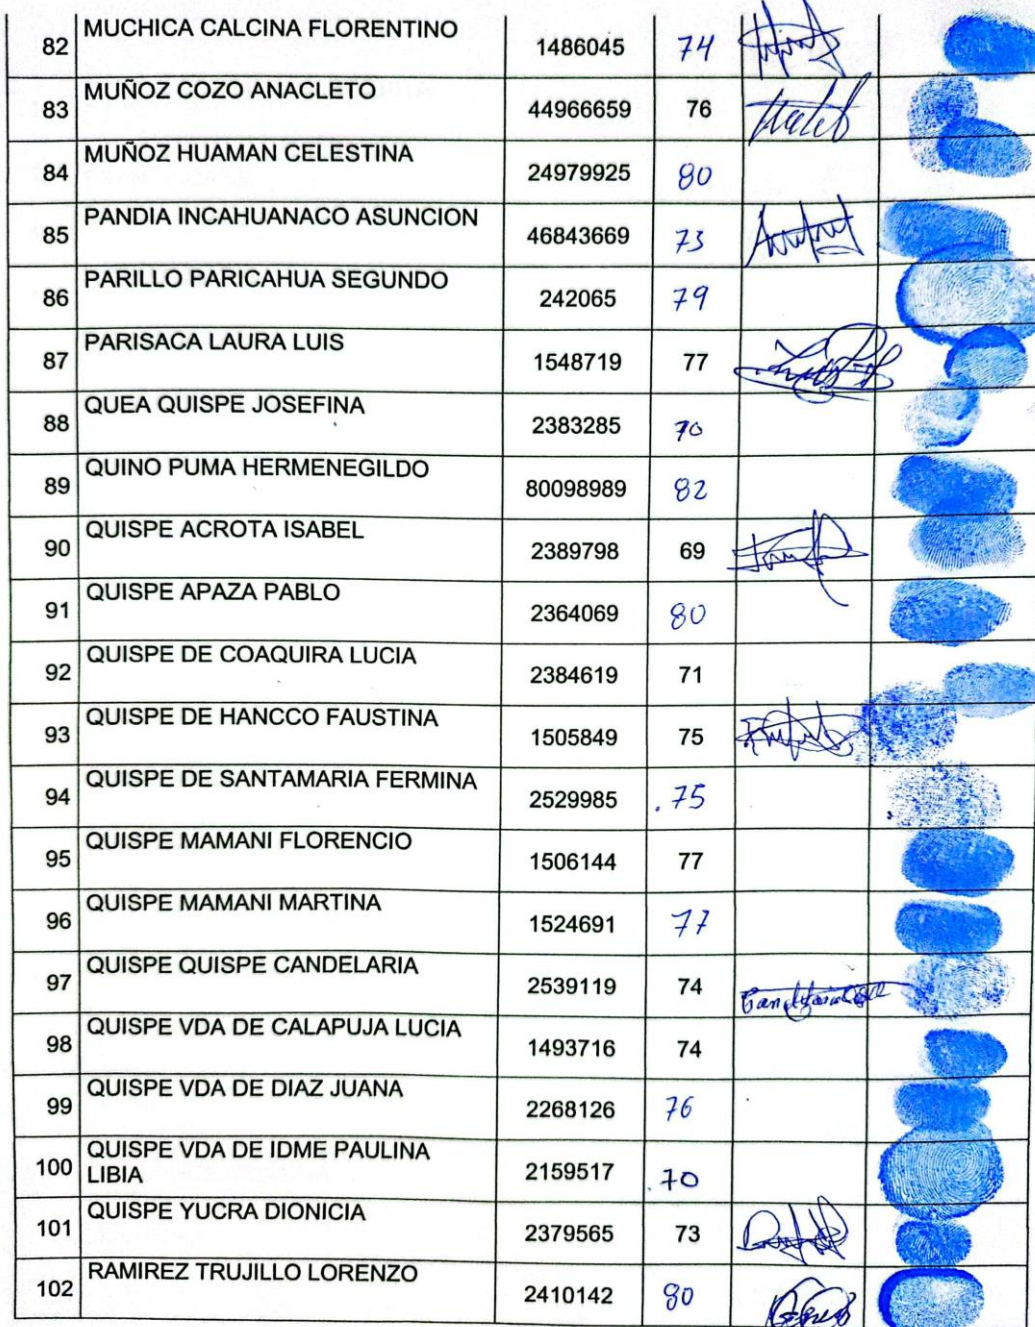 82 MUCHICA CALCINA FLORENTINO 1486045 74
83 MUÑOZ COZO ANACLETO 44966659 76
84 MUÑOZ HUAMAN CELESTINA 24979925 80
85 PANDIA INCAHUANACO ASUNCION 46843669 73
86 PARILLO PARICAHUA SEGUNDO 242065 79
87 PARISACA LAURA LUIS 1548719 77
88 QUEA QUISPE JOSEFINA 2383285 70
89 QUINO PUMA HERMENEGILDO 80098989 82
90 QUISPE ACROTA ISABEL 2389798 69
91 QUISPE APAZA PABLO 2364069 80
92 QUISPE DE COAQUIRA LUCIA 2384619 71
93 QUISPE DE HANCCO FAUSTINA 1505849 75
94 QUISPE DE SANTAMARIA FERMINA 2529985 .75
95 QUISPE MAMANI FLORENCIO 1506144 77
96 QUISPE MAMANI MARTINA 1524691 77
97 QUISPE QUISPE CANDELARIA 2539119 74
98 QUISPE VDA DE CALAPUJA LUCIA 1493716 74
99 QUISPE VDA DE DIAZ JUANA 2268126 76
100 QUISPE VDA DE IDME PAULINA
LIBIA 2159517 .70
101 QUISPE YUCRA DIONICIA 2379565 73
102 RAMIREZ TRUJILLO LORENZO 2410142 80